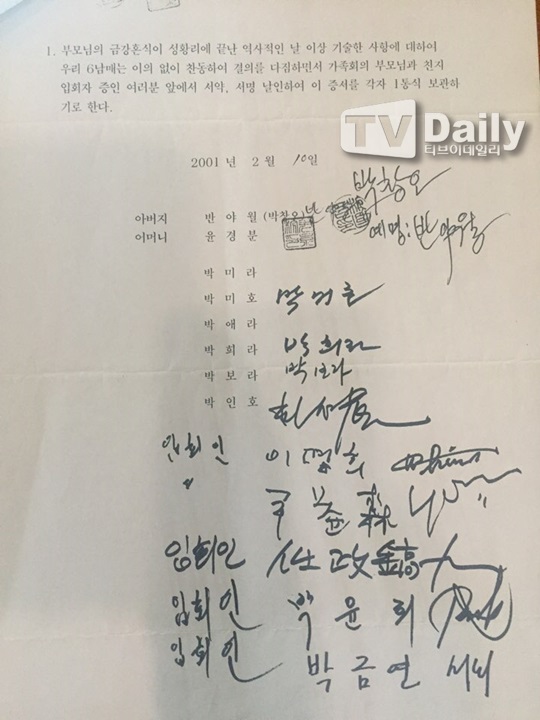 1. 부모님의 금강혼식이 성황리에 끝난 역사적인 날 이상 기술한 사항에 대하여
우리 6남매는 이의 없이 찬동하여 결의를 다짐하면서 가족회의 부모님과 친지
입회자 증인 여러분 앞에서 서약, 서명 날인하여 이 증서를 각자 1통식 보관하
기로 한다.
TV Daily
티브이데일리
2001 년 2 월 10 일
박창오
아버지 반 야 월 (박창오)
예명: 반야월
어머니 윤 경 분
박 미 라
박 미 호
박 애 라
박 희 라 박희라
박 보 라 박보라
박 인 호
입회인 이
〃
입회인 任政鎬
입회인 박윤희
입회인 박금연